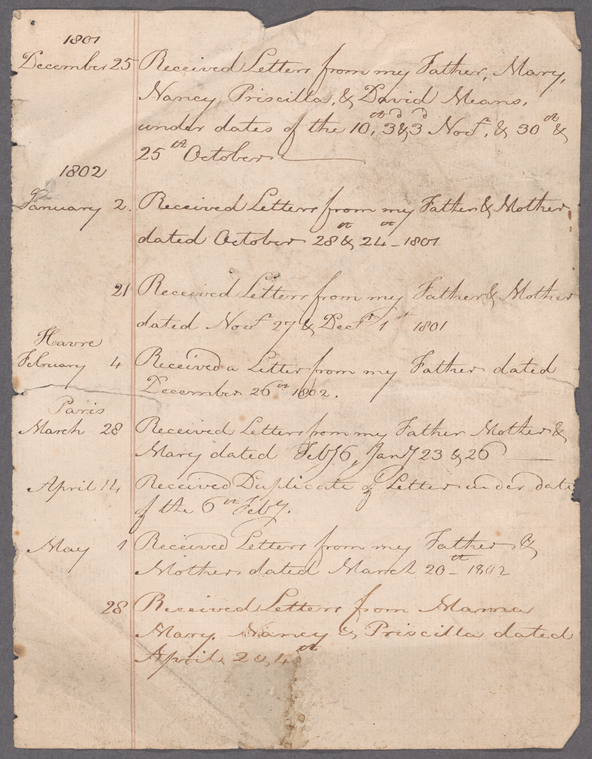 1801
December 25 Received Letters from my Father, Mary,
Nancy, Priscilla, & David Means,
under dates of the 10th, 3d & 3d Novr, & 30th &
25th October
1802
January 2. Received Letters from my Father & Mother
dated October 28th & 24th - 1801
21 Received Letters from my Father & Mother
dated Novr 27 & Decr 1st 1801
Havre
February 4 Received a Letter from my Father dated
December 26th 1802.
Paris
March 28 Received Letters from my Father Mother &
Mary dated Feby 6, Jany 23 & 26
April 14 Received Duplicate of Letter under date
of the 6th Feby.
May 1 Received Letters from my Father &
Mother dated March 20th - 1802
28 Received Letters from Mamma
Mary, Nancy & Priscilla dated
April 2 & 4th